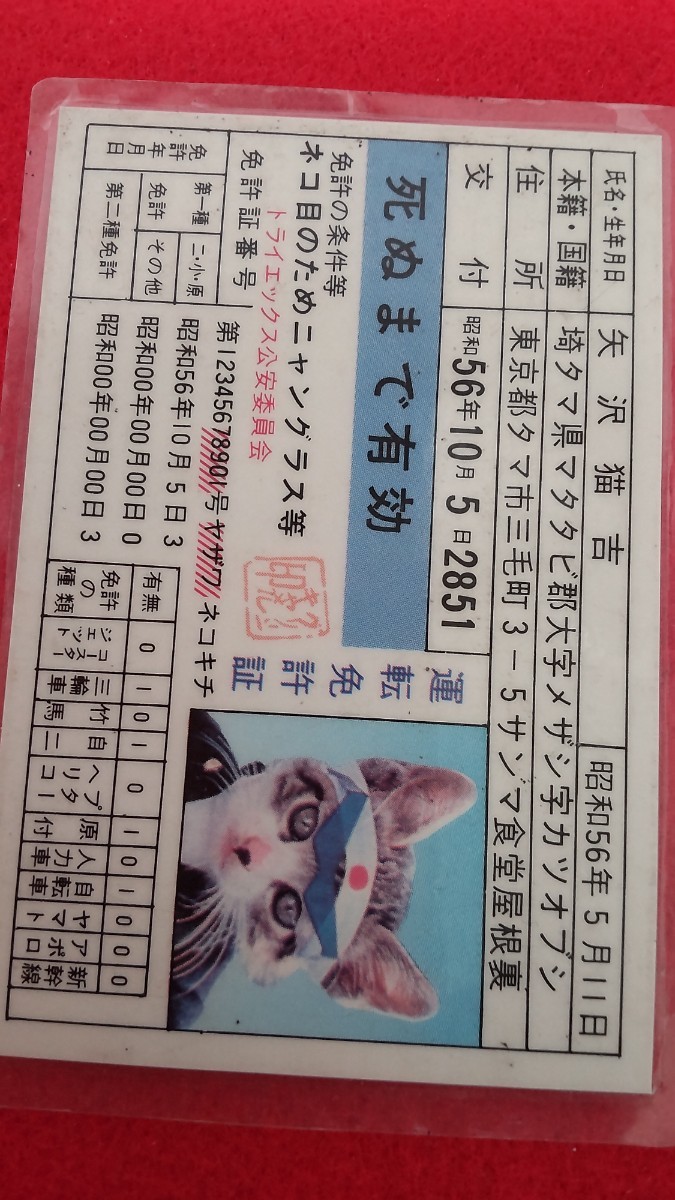 氏名・生年月日 矢沢猫吉 昭和56年5月11日
本籍・国籍 埼タマ県マタタビ郡大字メザシ字カツオブシ
住所 東京都タマ市三毛町3-5サンマ食堂屋根裏
交付 昭和56年10月5日2851
死ぬまで有効
免許の条件等
ネコ目のためニャングラス等
トライエックス公安委員会
運転免許証
免許証番号 第12345678901号 ヤザワネコキチ
免許年月日
第一種 二・小・原 昭和56年10月5日3
免許 その他 昭和00年00月00日0
第二種免許 昭和00年00月00日3
有無 0 1 0 1 0 1 0 1 0 0 0
免許の種類 ジェットコースター 三輪車 竹馬 自二 ヘリコプター 原付 人力車 自転車 ヤマト アポロ 新幹線